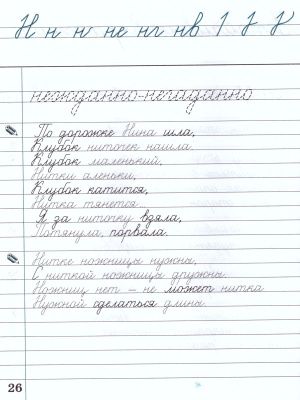 Н н н не нг нв 1 J J
нежданно-негаданно
По дорожке Нина шла,
Клубок ниточек нашла.
Клубок маленький,
Нитки аленьки,
Клубок катится,
Нитка тянется.
Я за ниточку взяла,
Потянула, порвала.
Нитке ножницы нужны,
С ниткой ножницы дружны.
Ножниц нет – не может нитка
Нужной сделаться длины.
26